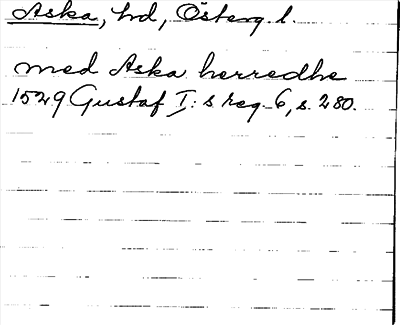 Aska, hd, Österg. l.
med Aska herredhe
1529 Gustaf I: s reg. 6, s. 280.